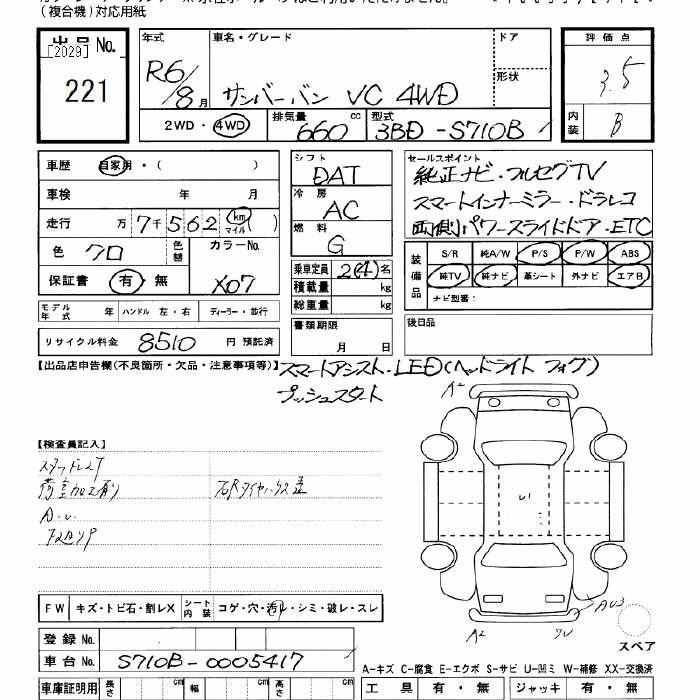 (複合機)対応用紙
出品 No.
[2029]
221
年式
R6/8月
車名・グレード
サンバーバン VC 4WD
ドア
形状
2WD・4WD
排気量 660 cc
型式 3BD-S710B
評価点
3.5
内装 B
車歴 自家用・( )
車検 年 月
走行 万 7千562 km マイル ( )
色 クロ
色替
カラーNo. X07
保証書 有・無
モデル年式 年 ハンドル 左・右 ディーラー・並行
リサイクル料金 8510 円 預託済
シフト DAT
冷房 AC
燃料 G
乗車定員 2(4)名
積載量 kg
総重量 kg
書類期限
月 日
セールスポイント
純正ナビ・フルセグTV
スマートインナーミラー・ドラレコ
両側パワースライドドア・ETC
装備品
S/R 純A/W P/S P/W ABS
純TV 純ナビ 革シート 外ナビ エアB
ナビ型番:
後日品
【出品店申告欄(不良箇所・欠品・注意事項等)】
スマートアシスト・LED(ヘッドライト フォグ)
プッシュスタート
【検査員記入】
スタッドレスT
荷室加工有り
A.U
A2
U1
A2
AU3
スペア
FW キズ・トビ石・割レX
シート内装 コゲ・穴・汚レ・シミ・破レ・スレ
登録 No.
車台 No. S710B-0005417
車庫証明用 長さ cm 幅 cm 高さ cm
A-キズ C-腐食 E-エクボ S-サビ U-凹ミ W-補修 XX-交換済
工具 有・無 ジャッキ 有・無